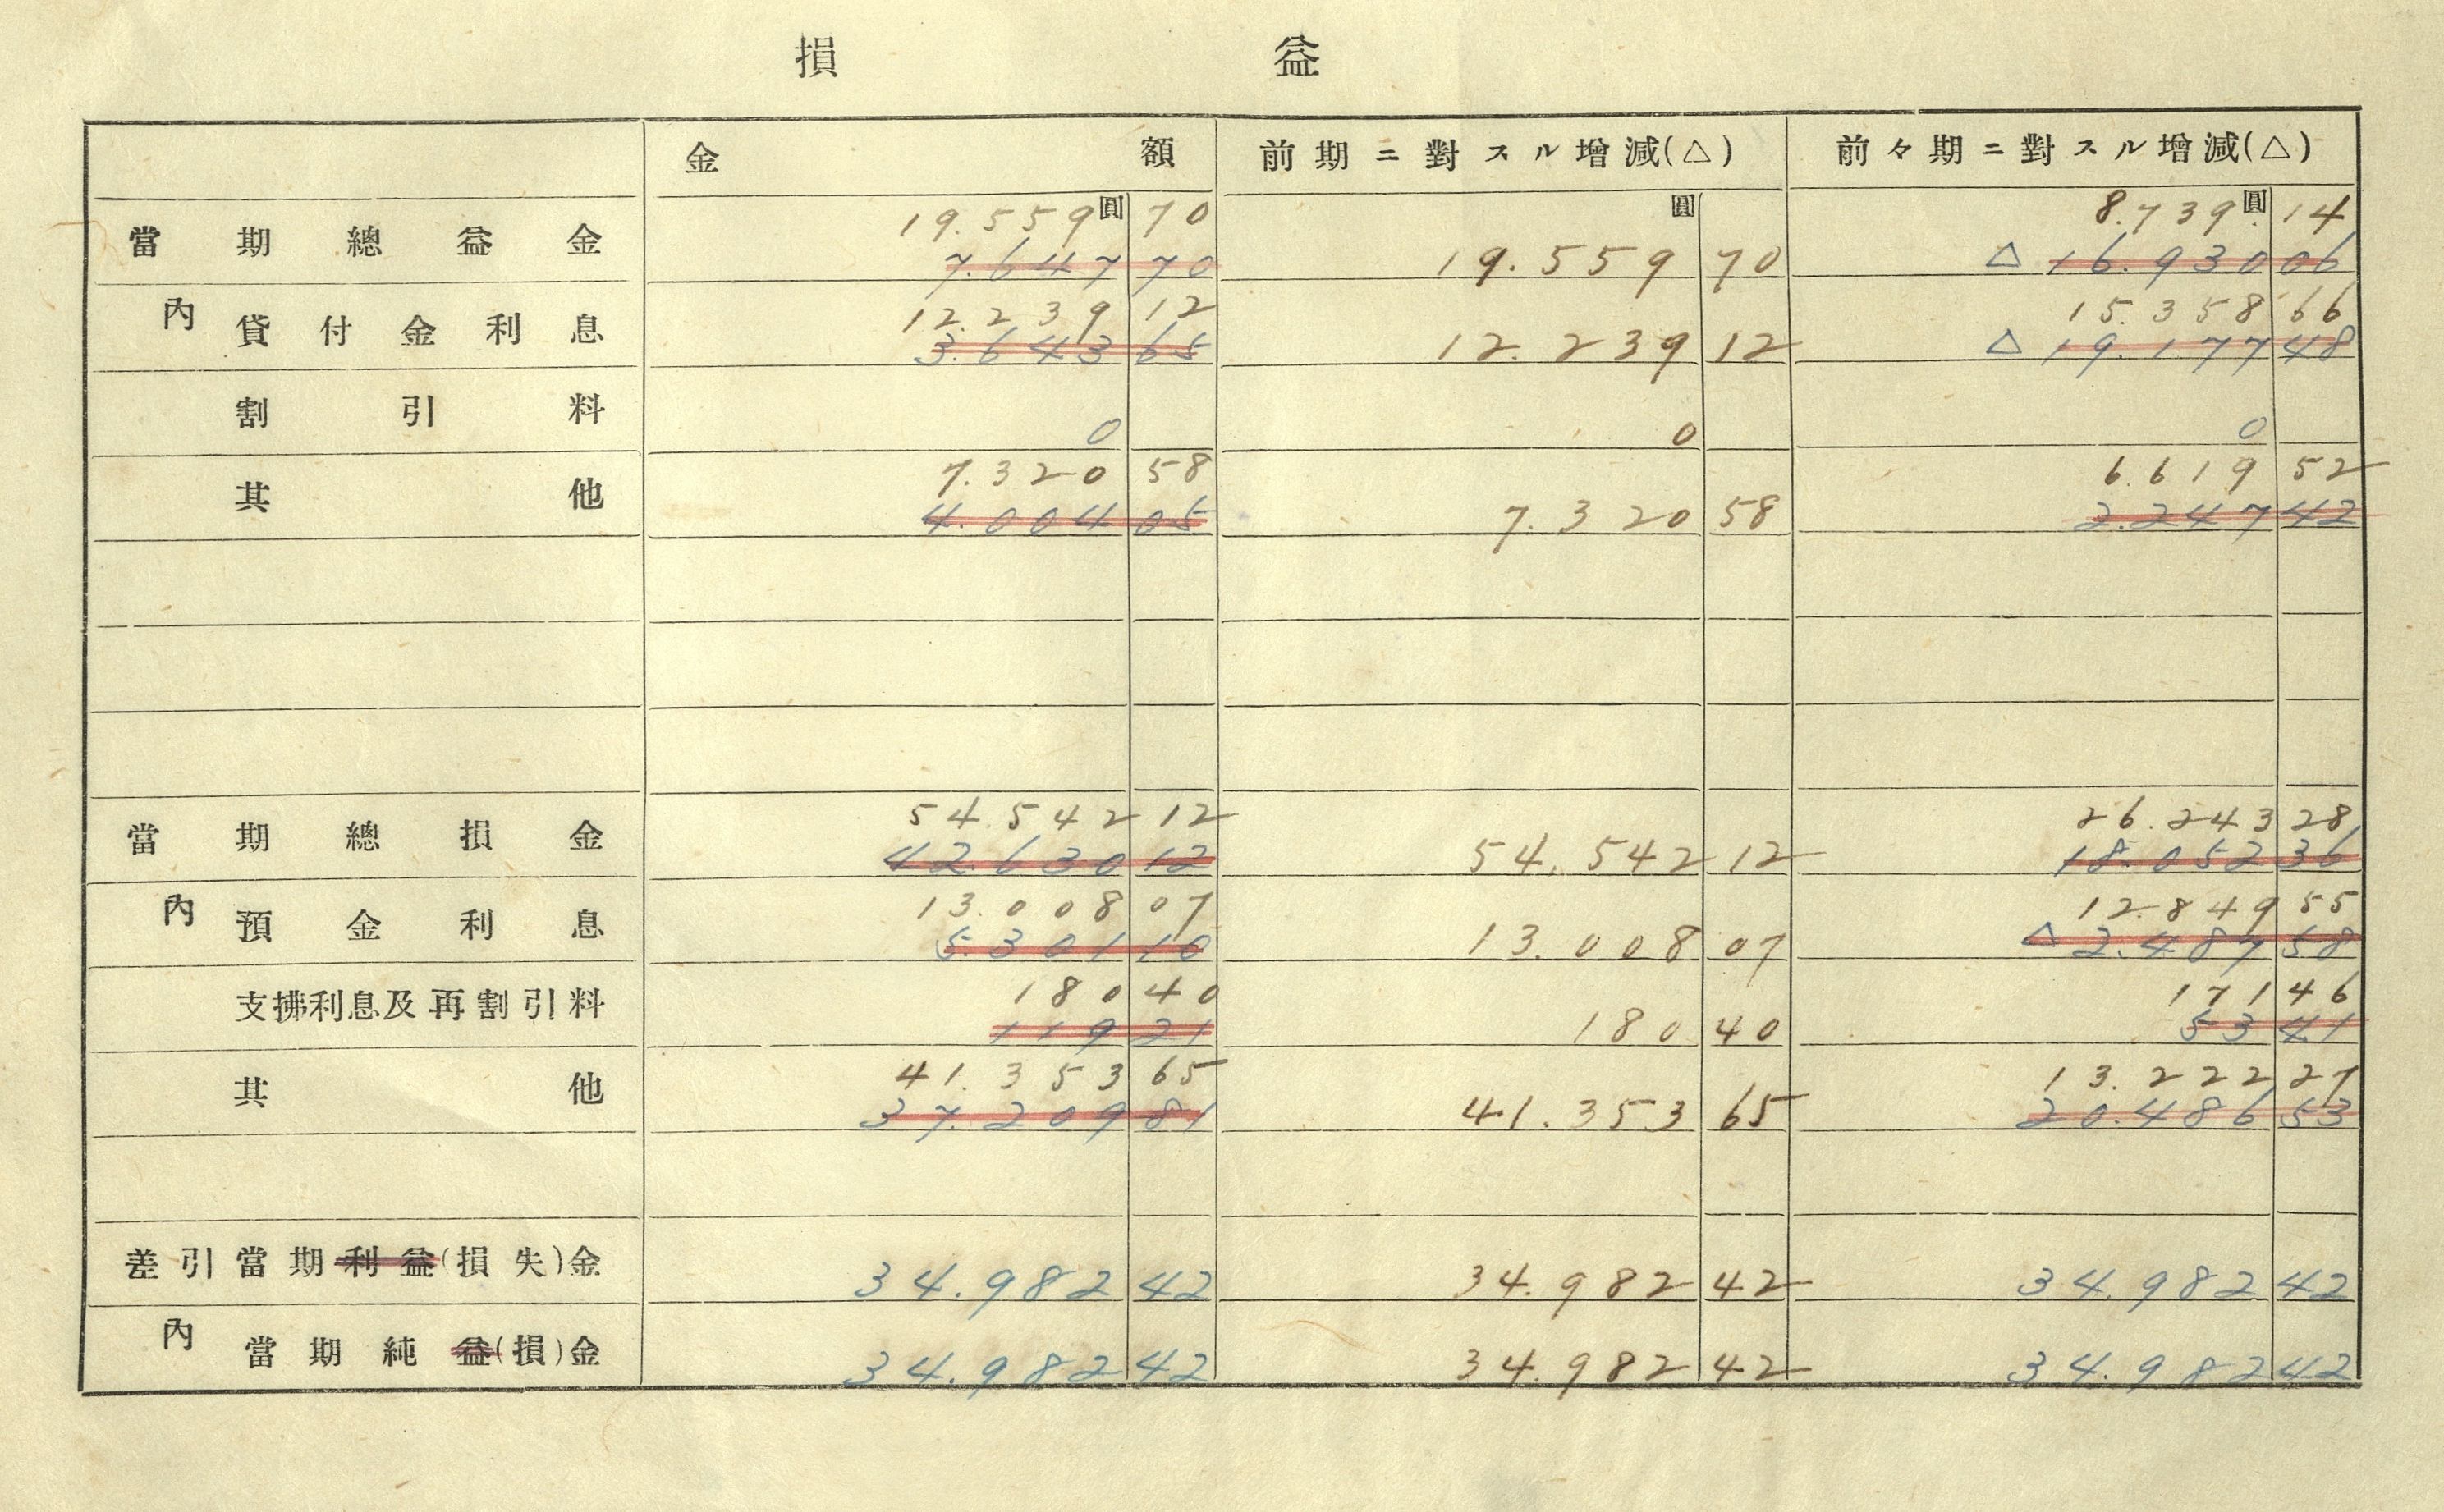 損 益
金 額 前期ニ對スル增減(△) 前々期ニ對スル增減(△)
19.559圓70 圓 8.739.圓14
當期總益金 7.647 70 19.559 70 △16.930 06
12.239 12 15.358 66
內 貸付金利息 3.643 65 12.239 12 △19.177 48
割引料 0 0 0
7.320 58 6.619 52
其他 4.004 05 7.320 58 2.247 42
54.542 12 26.243 28
當期總損金 42.630 12 54.542 12 18.052 36
13.008 07 12.849 55
內 預金利息 5.301 10 13.008 07 △2.487 58
180 40 171 46
支拂利息及再割引料 119 21 180 40 53 41
41.353 65 13.222 27
其他 37.209 81 41.353 65 20.486 53
差引當期利益(損失)金 34.982 42 34.982 42 34.982 42
內 當期純益(損)金 34.982 42 34.982 42 34.982 42